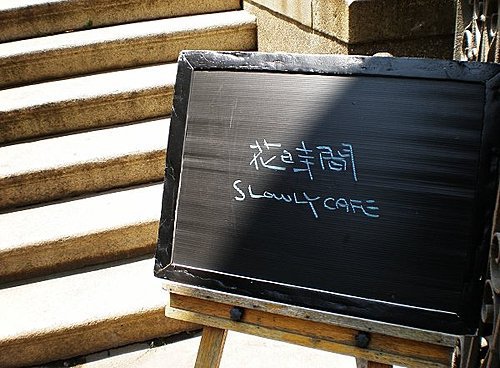 花時間
SLOWLY CAFE